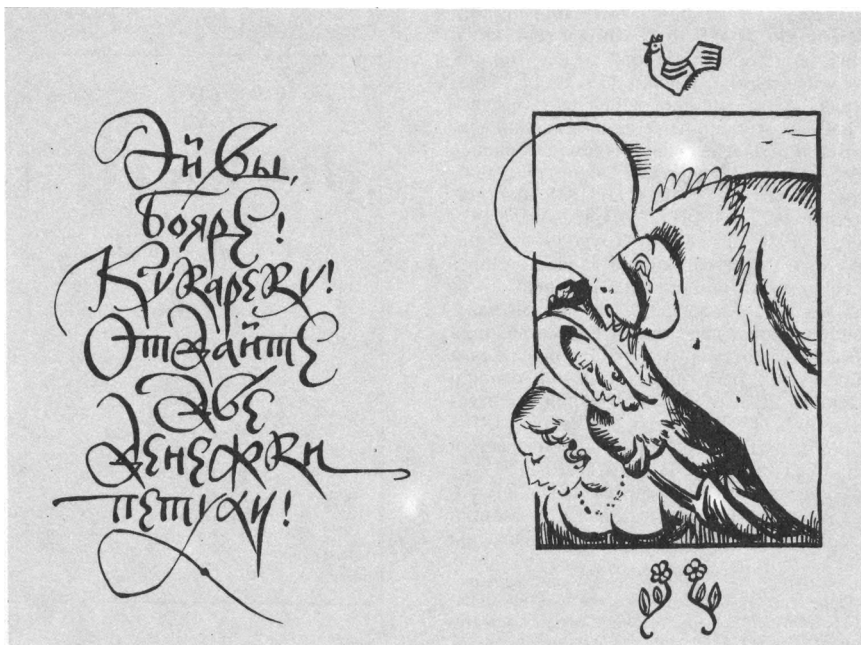 Эй вы,
бояре!
Кукареку!
Отдайте
две
денежки
петуху!